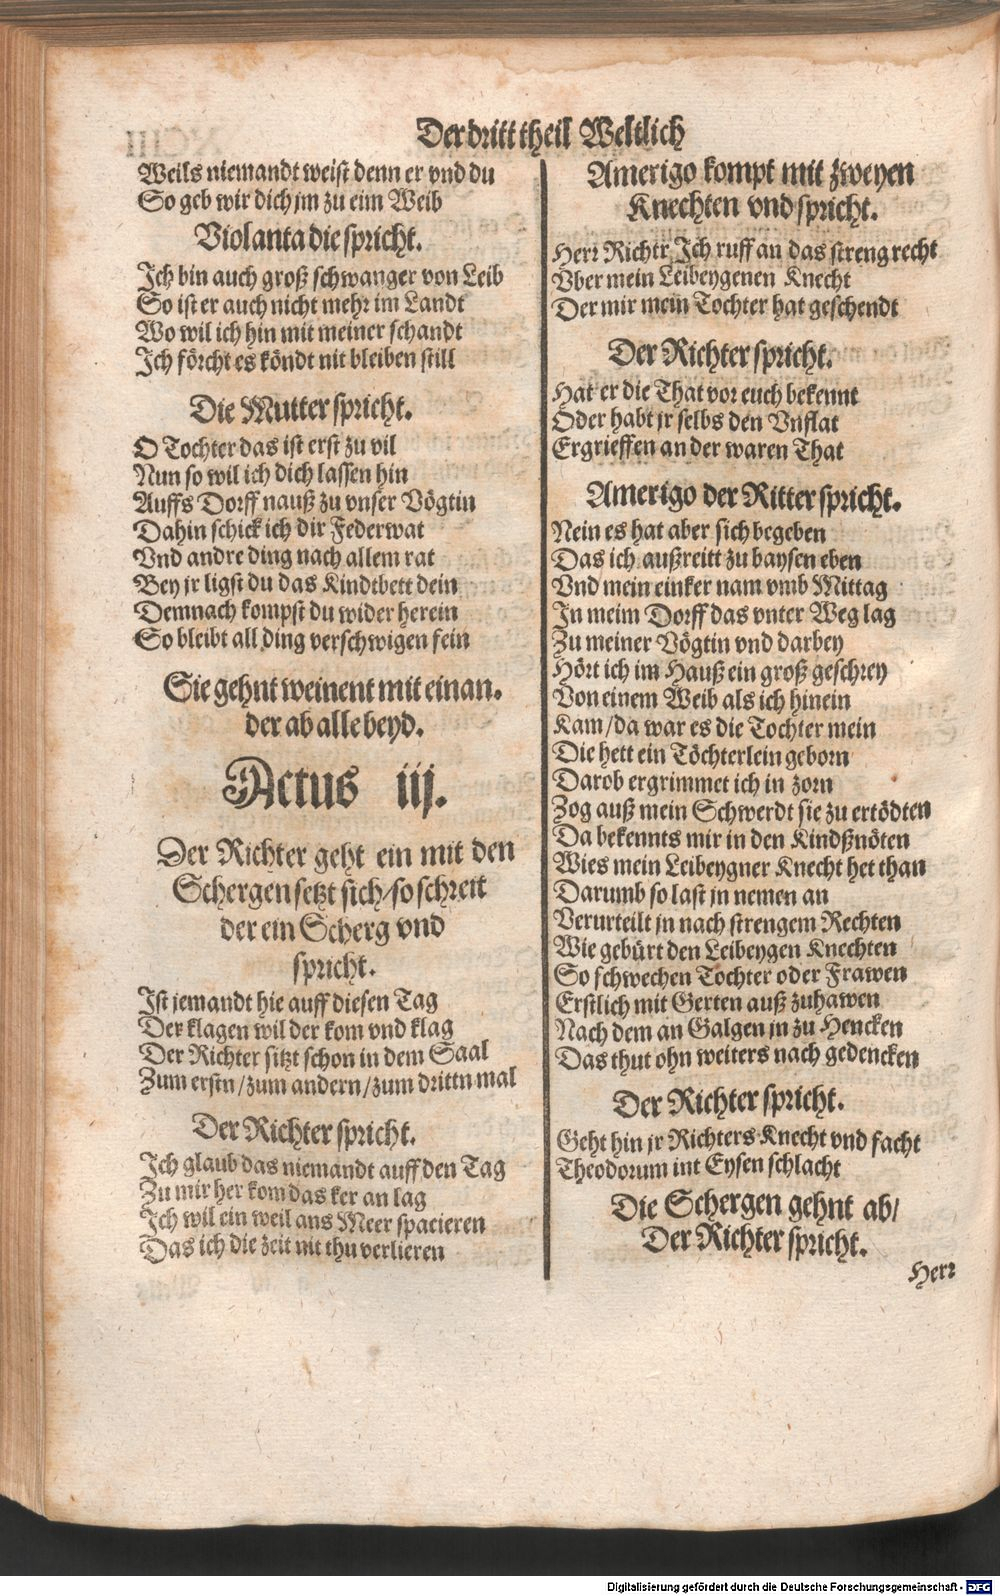 Der dritt theil Weltlich
Weils niemandt weist denn er vnd du
So geb wir dich jm zu eim Weib
Violanta die spricht.
Ich bin auch groß schwanger von Leib
So ist er auch nicht mehr im Landt
Wo wil ich hin mit meiner schandt
Ich förcht es köndt nit bleiben still
Die Mutter spricht.
O Tochter das ist erst zu vil
Nun so wil ich dich lassen hin
Auffs Dorff nauß zu vnser Vögtin
Dahin schick ich dir Federwat
Vnd andre ding nach allem rat
Bey jr ligst du das Kindtbett dein
Demnach kompst du wider herein
So bleibt all ding verschwigen fein
Sie gehnt weinent mit einan-
der ab alle beyd.
Actus iij.
Der Richter geht ein mit den
Schergen setzt sich/so schreit
der ein Scherg vnd
spricht.
Ist jemandt hie auff diesen Tag
Der klagen wil der kom vnd klag
Der Richter sitzt schon in dem Saal
Zum erstn/zum andern/zum drittn mal
Der Richter spricht.
Ich glaub das niemandt auff den Tag
Zu mir her kom das ker an lag
Ich wil ein weil ans Meer spacieren
Das ich die zeit nit thu verlieren
Amerigo kompt mit zweyen
Knechten vnd spricht.
Herr Richtr Ich ruff an das streng recht
Vber mein Leibeygenen Knecht
Der mir mein Tochter hat geschendt
Der Richter spricht.
Hat er die That vor euch bekennt
Oder habt jr selbs den Vnflat
Ergrieffen an der waren That
Amerigo der Ritter spricht.
Nein es hat aber sich begeben
Das ich außreitt zu baysen eben
Vnd mein einker nam vmb Mittag
In meim Dorff das vnter Weg lag
Zu meiner Vögtin vnd darbey
Hört ich im Hauß ein groß geschrey
Von einem Weib als ich hinein
Kam/da war es die Tochter mein
Die hett ein Töchterlein geborn
Darob ergrimmet ich in zorn
Zog auß mein Schwerdt sie zu ertödten
Da bekennts mir in den Kindßnöten
Wies mein Leibeygner Knecht het than
Darumb so last jn nemen an
Verurteilt jn nach strengem Rechten
Wie gebürt den Leibeygen Knechten
So schwechen Tochter oder Frawen
Erstlich mit Gerten auß zuhawen
Nach dem an Galgen jn zu Hencken
Das thut ohn weiters nach gedencken
Der Richter spricht.
Geht hin jr Richters Knecht vnd facht
Theodorum int Eysen schlacht
Die Schergen gehnt ab/
Der Richter spricht.
Herr
Digitalisierung gefördert durch die Deutsche Forschungsgemeinschaft - DFG